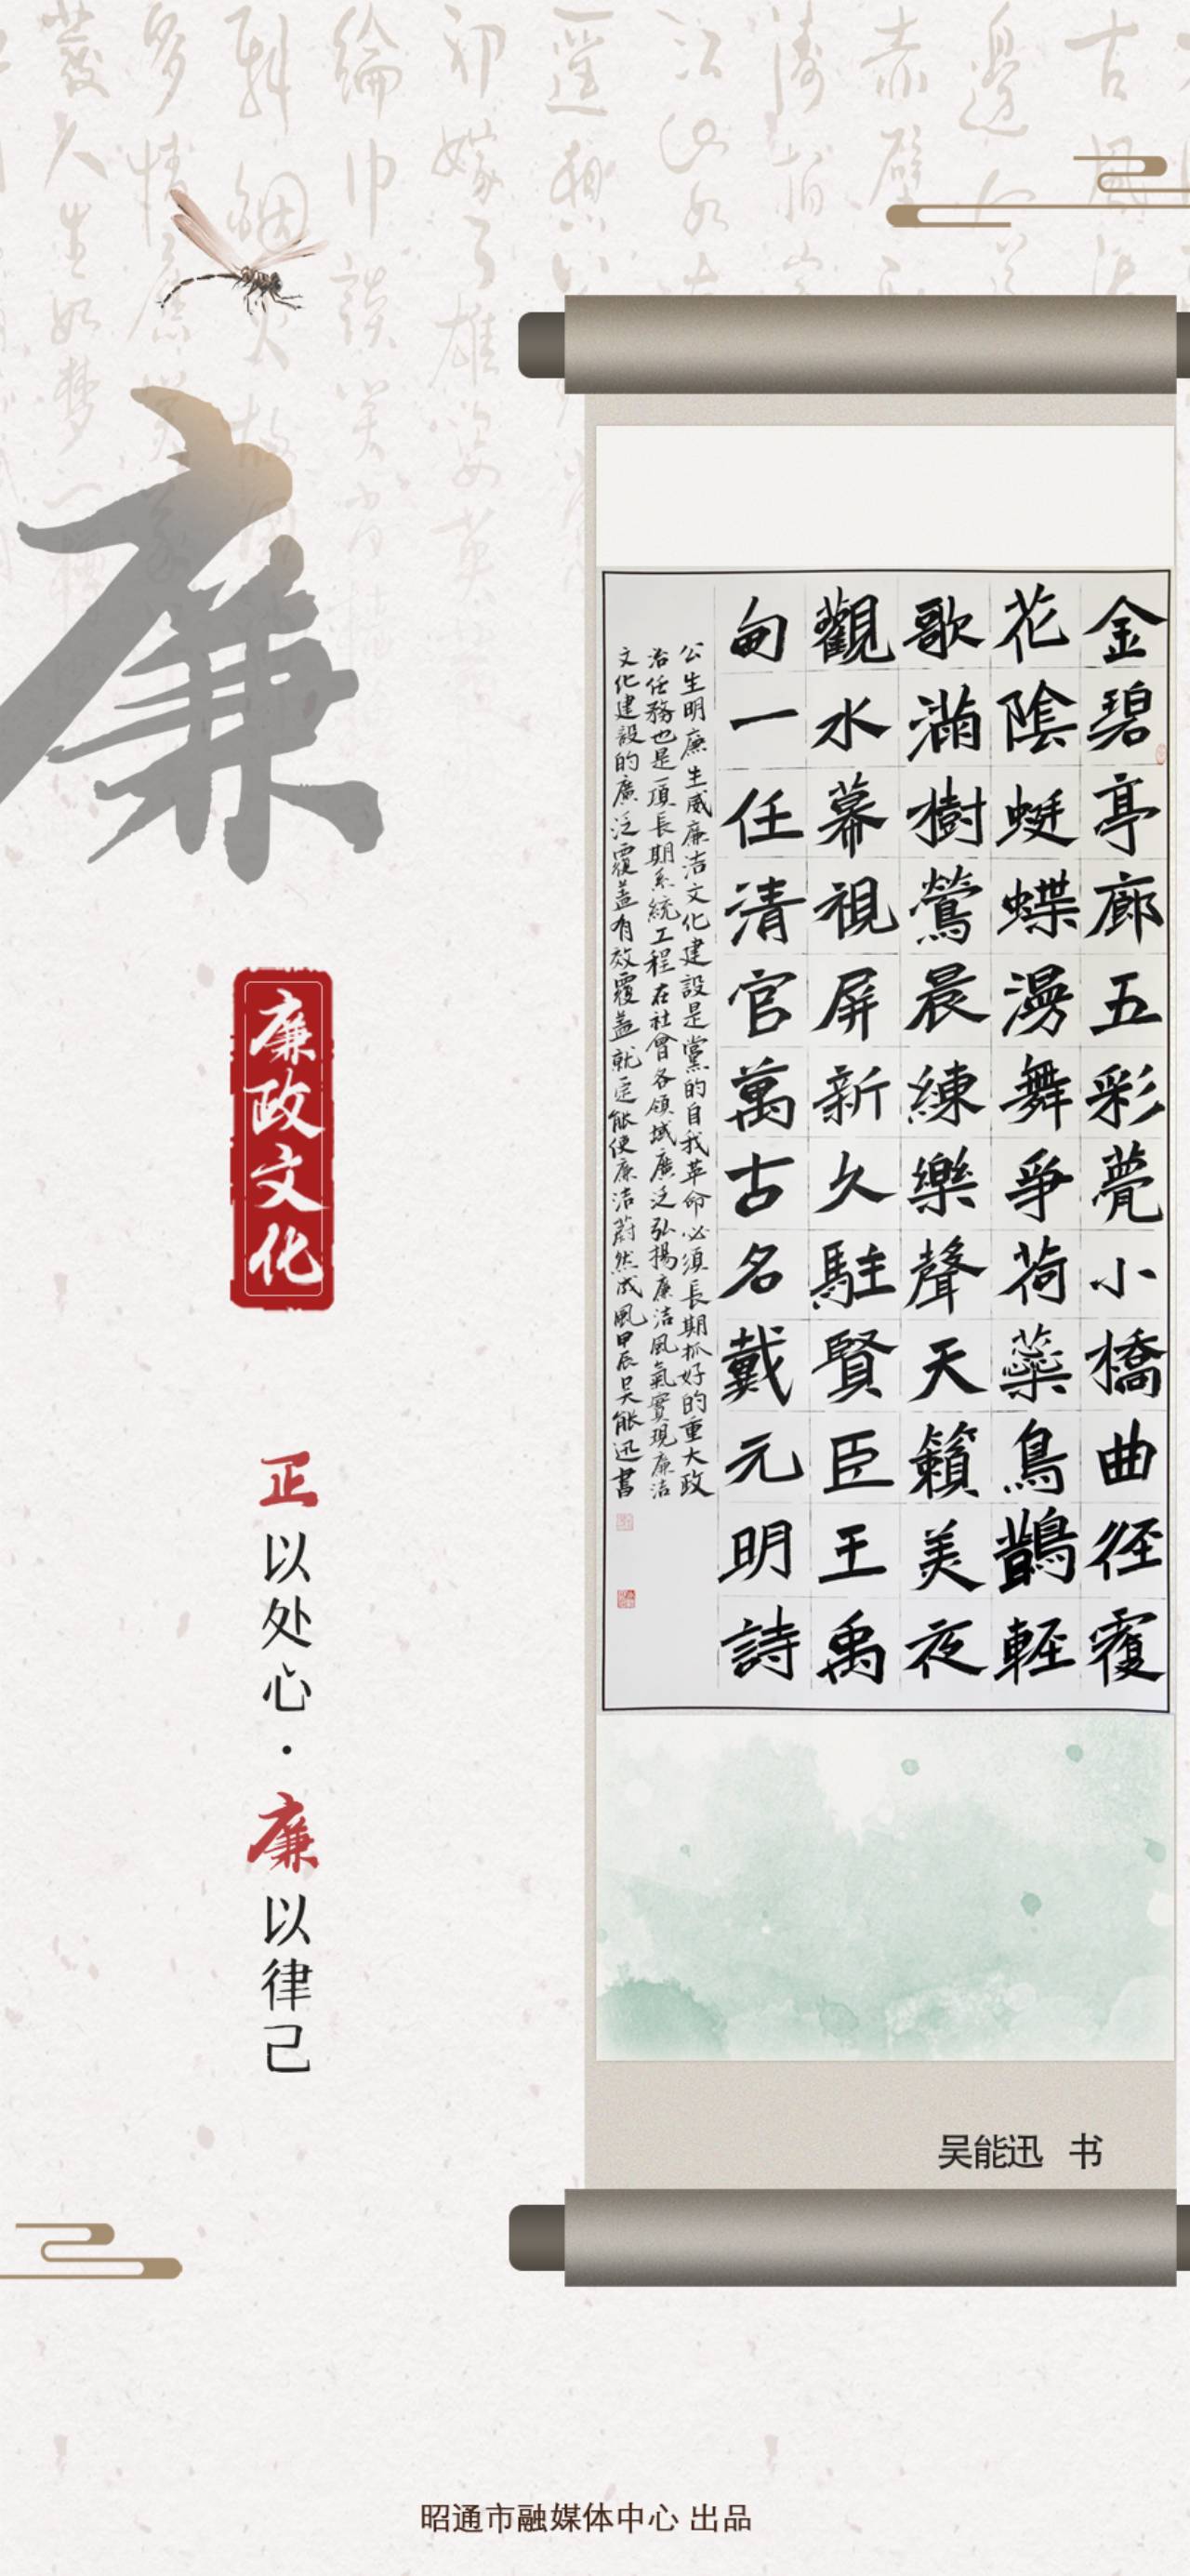 廉
廉政文化
正以处心·廉以律己
金碧亭廊五彩甍小橋曲径覆
花陰蜓蝶漫舞爭荷蘂鳥鵲輕
歌滿樹鶯晨練樂聲天籟美夜
觀水幕視屏新久駐賢臣王禹
甸一任清官萬古名戴元明詩
公生明廉生威廉洁文化建設是黨的自我革命必須長期抓好的重大政
治任務也是項長期系統工程在社會各領域廣泛弘揚廉洁風氣實現廉洁
文化建設的廣泛覆盖有效覆盖就定能使廉洁蔚然成風甲辰吴能迅書
吴能迅 书
昭通市融媒体中心 出品